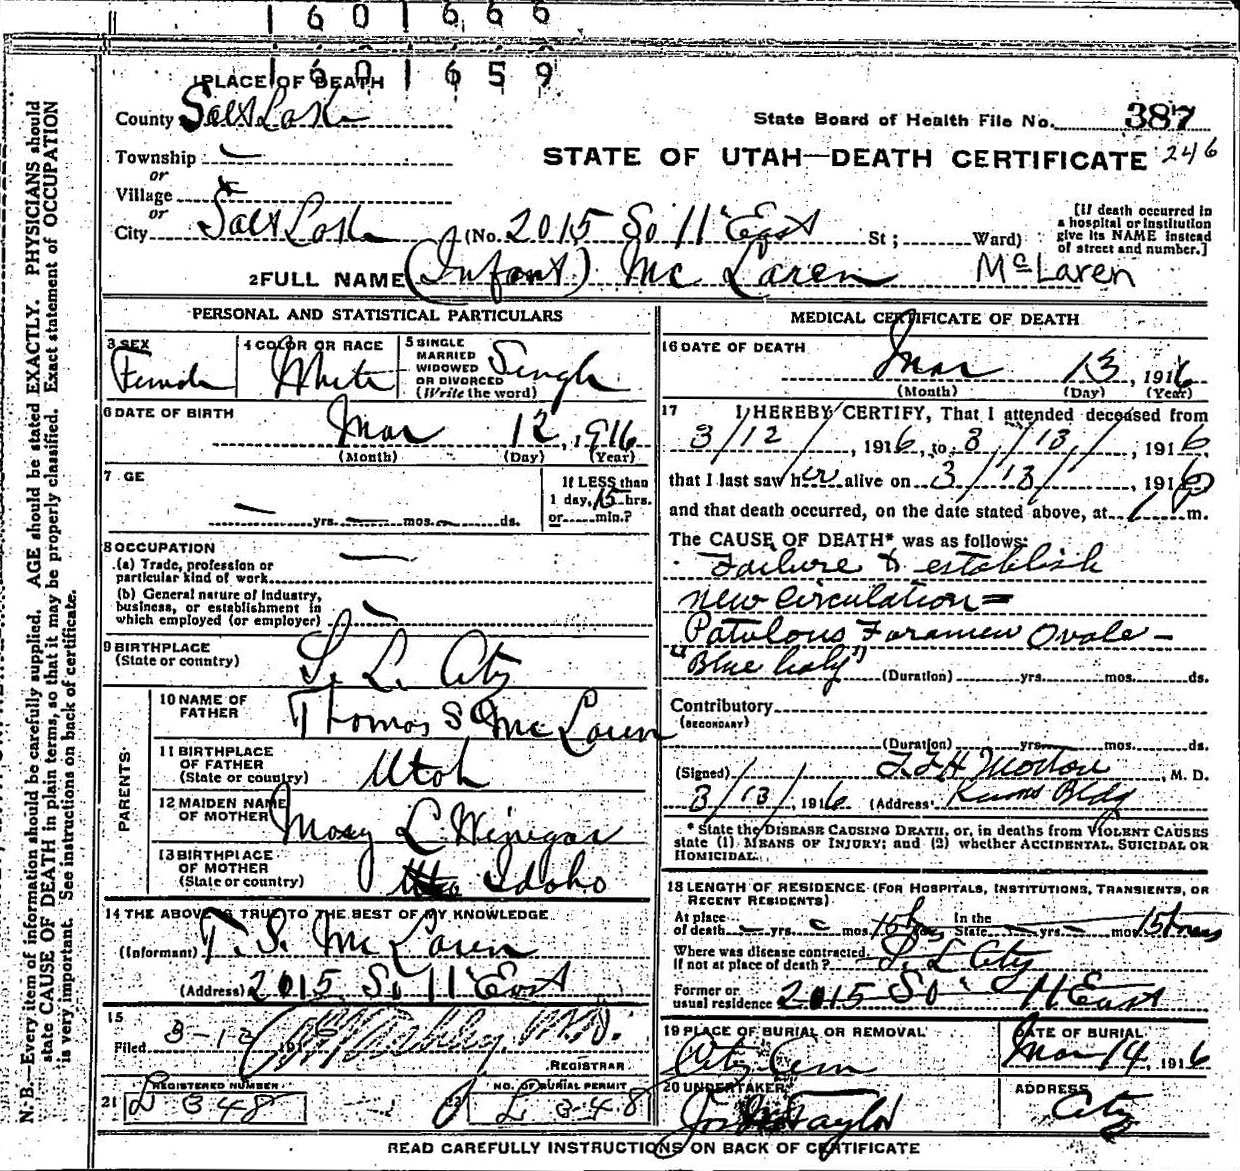 1 6 0 1 6 6 6
1 6 0 1 6 5 9
1 PLACE OF DEATH
County Salt Lake
State Board of Health File No. 387
Township —
or
STATE OF UTAH—DEATH CERTIFICATE 246
Village
or
City Salt Lake (No. 2015 So 11 East St; Ward)
[If death occurred in
a hospital or institution
give its NAME instead
of street and number.]
2 FULL NAME (Infant) Mc Laren McLaren
PERSONAL AND STATISTICAL PARTICULARS
3 SEX
Female
4 COLOR OR RACE
White
5 SINGLE
MARRIED
WIDOWED
OR DIVORCED
(Write the word)
Single
6 DATE OF BIRTH
Mar 12, 1916
(Month) (Day) (Year)
7 GE
— yrs. — mos. — ds.
If LESS than
1 day, 15 hrs.
or min.?
8 OCCUPATION —
(a) Trade, profession or
particular kind of work
(b) General nature of Industry,
business, or establishment in
which employed (or employer)
9 BIRTHPLACE
(State or country)
S. L. City
PARENTS
10 NAME OF
FATHER
Thomas S Mc Laren
11 BIRTHPLACE
OF FATHER
(State or country)
Utah
12 MAIDEN NAME
OF MOTHER
Mary L Winegar
13 BIRTHPLACE
OF MOTHER
(State or country)
Idaho
14 THE ABOVE IS TRUE TO THE BEST OF MY KNOWLEDGE
(Informant) T. S. Mc Laren
(Address) 2015 So 11 East
15
Filed 3-13 191 M.D.
REGISTRAR
21 REGISTERED NUMBER
L 348
NO. OF BURIAL PERMIT
L 348
MEDICAL CERTIFICATE OF DEATH
16 DATE OF DEATH
Mar 13, 1916
(Month) (Day) (Year)
17 I HEREBY CERTIFY, That I attended deceased from
3/12/, 1916, to 3/13/, 1916,
that I last saw her alive on 3/13/, 1916
and that death occurred, on the date stated above, at 1 P m.
The CAUSE OF DEATH* was as follows:
Failure to establish
new circulation =
Patulous Foramen Ovale —
"Blue baby"
(Duration) yrs. mos. ds.
Contributory
(SECONDARY)
(Duration) yrs. mos. ds.
(Signed) Morton, M. D.
3/13/, 1916 (Address) Kearns Bldg
* State the DISEASE CAUSING DEATH, or, in deaths from VIOLENT CAUSES
state (1) MEANS OF INJURY; and (2) whether ACCIDENTAL, SUICIDAL OR
HOMICIDAL.
18 LENGTH OF RESIDENCE (FOR HOSPITALS, INSTITUTIONS, TRANSIENTS, OR
RECENT RESIDENTS)
At place
of death — yrs. — mos. 15 hrs
In the
State — yrs. — mos. 15 hours
Where was disease contracted,
if not at place of death? S. L. City
Former or
usual residence 2015 So 11 East
19 PLACE OF BURIAL OR REMOVAL
City Cem
DATE OF BURIAL
Mar 14, 1916
20 UNDERTAKER
Taylor
ADDRESS
City
READ CAREFULLY INSTRUCTIONS ON BACK OF CERTIFICATE
N. B.—Every item of information should be carefully supplied. AGE should be stated EXACTLY. PHYSICIANS should
state CAUSE OF DEATH in plain terms, so that it may be properly classified. Exact statement of OCCUPATION
is very important. See instructions on back of certificate.